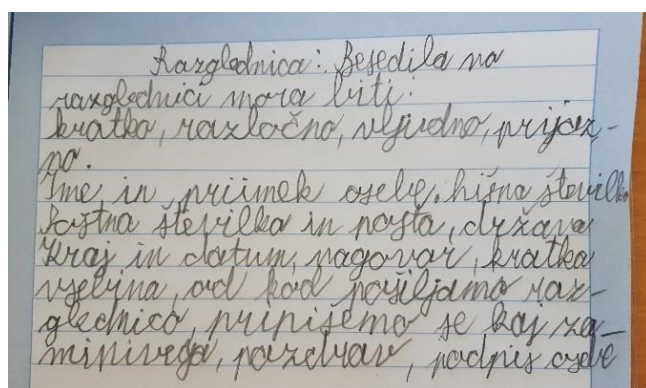 Razglednica: Besedila na
razglednici mora biti:
kratko, razločno, vljudno, prijaz-
no.
Ime in priimek osebe, hišna številka
Poštna številka in pošta, država
Kraj in datum, nagovor, kratka
vsebina, od kod pošiljamo raz-
glednico, pripišemo še kaj za-
mimivega, pozdrav, podpis osebe